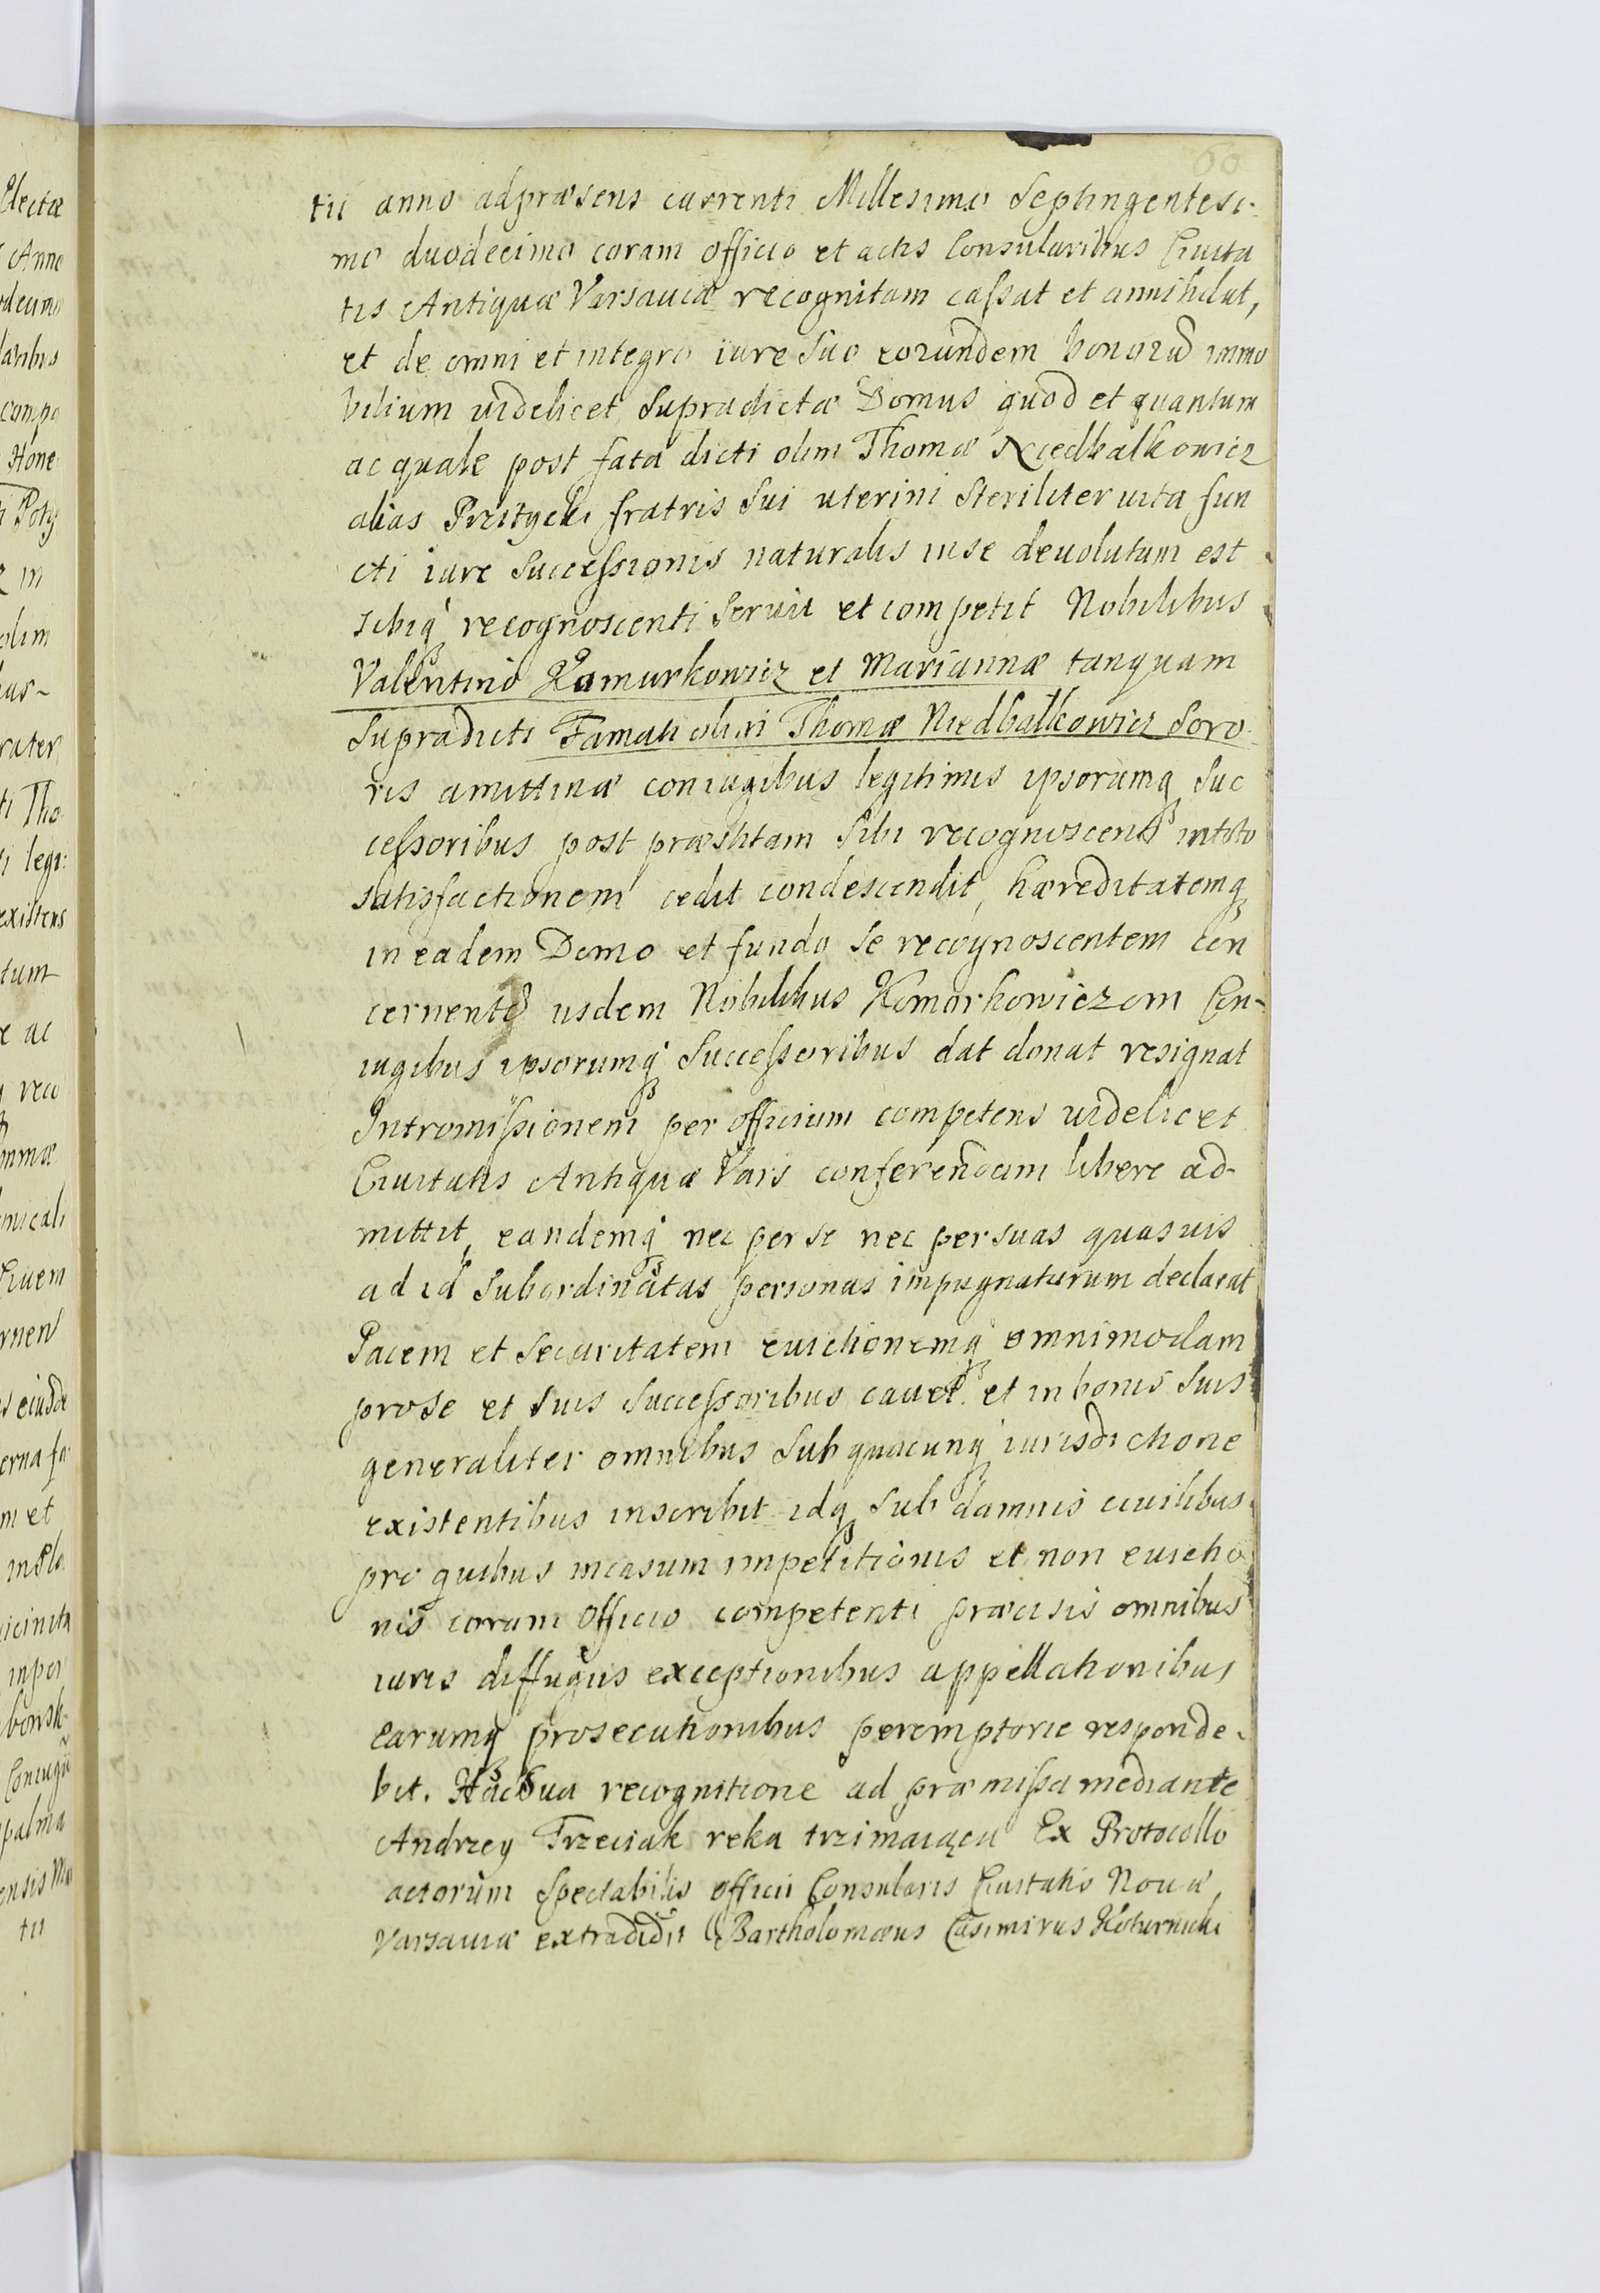 60
tii anno adpræsens currenti Millesimo Septingentesi-
mo duodecimo coram officio et actis Consularibus Ciuita
tis Antiquæ Varsauiæ recognitam cassat et annihilat,
et de omni et integro iure Suo eorundem bonorũ immo
bilium uidelicet Supradictæ Domus quod et quantum
ac quale post fata dicti olim Thomæ Niedbalkowicz
alias Przitycki fratris Sui uterini Steriliter uita fun
cti iure Successionis naturalis inse deuolutum est
sibiq recognoscenti Seruit et competit Nobilibus
Valentino Kamurkowicz et Mariannæ tanquam
Supradicti Famati olim Thomæ Niedbalkowicz Soro-
ris amittinæ coniugibus legitimis ipsorumq Suc
cessoribus post præstitam Sibi recognoscenti intoto
satisfactionem cedit condescendit, hæreditatemq
in eadem Domo et fundo Se recognoscentem con
cernentẽ iisdem Nobilibus Komorkowiczom Con-
iugibus ipsorumq Successoribus dat donat resignat
Intromissionem per officium competens uidelicet
Ciuitatis Antiquæ Vars conferendam libere ad-
mittit, eandemq nec per se nec per suas quasuis
ad id Subordinatas personas impugnaturum declarat
Pacem et Securitatem euictionemq omnimodam
prose et Suis Successoribus cauet et in bonis Suis
generaliter omnibus Sub quacunq iurisdictione
existentibus inscribit idq Sub damnis ciuilibus
pro quibus incasum impetitionis et non euictio
nis coram Officio competenti præcisis omnibus
iuris diffugiis exceptionibus appellationibus
earumq prosecutionibus peremptorie responde-
bit. Hac Sua recognitione ad præmissa mediante
Andrzey Trzeciak reka trzimaiącu Ex Protocollo
actorum Spectabilis officii Consularis Ciuitatis Nouæ
Varsauiæ extradidit Bartholomæus Casimirus Koturnicki